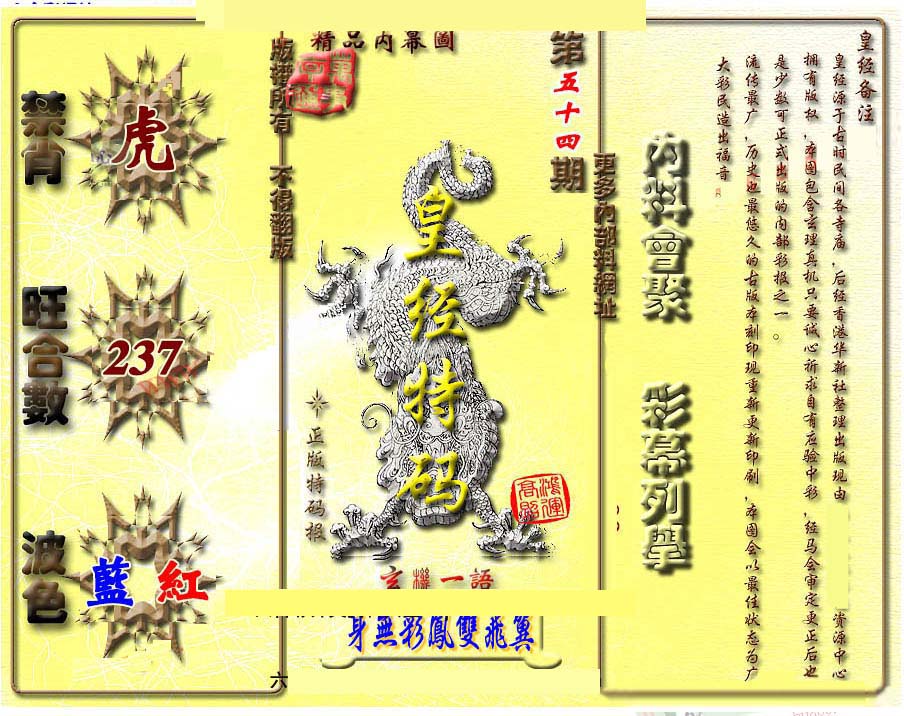 精品內幕圖
版權所有 不得翻版
第五十四期
更多內部料網址
禁肖
虎
旺合數
237
波色
藍 紅
皇经特码
正版特码报
鴻運高照
玄機一語
身無彩鳳雙飛翼
六
內料會聚
彩幕列舉
皇经备注
皇经源于古时民间各寺庙，后经香港华新社整理出版现由 资源中心
拥有版权，本图包含玄理真机只要诚心祈求自有应验中彩，经马会审定更正后也
是少数可正式出版的内部彩报之一。
流传最广，历史也最悠久的古版本刻印现重新更新印刷，本图会以最佳状态为广
大彩民造出福音